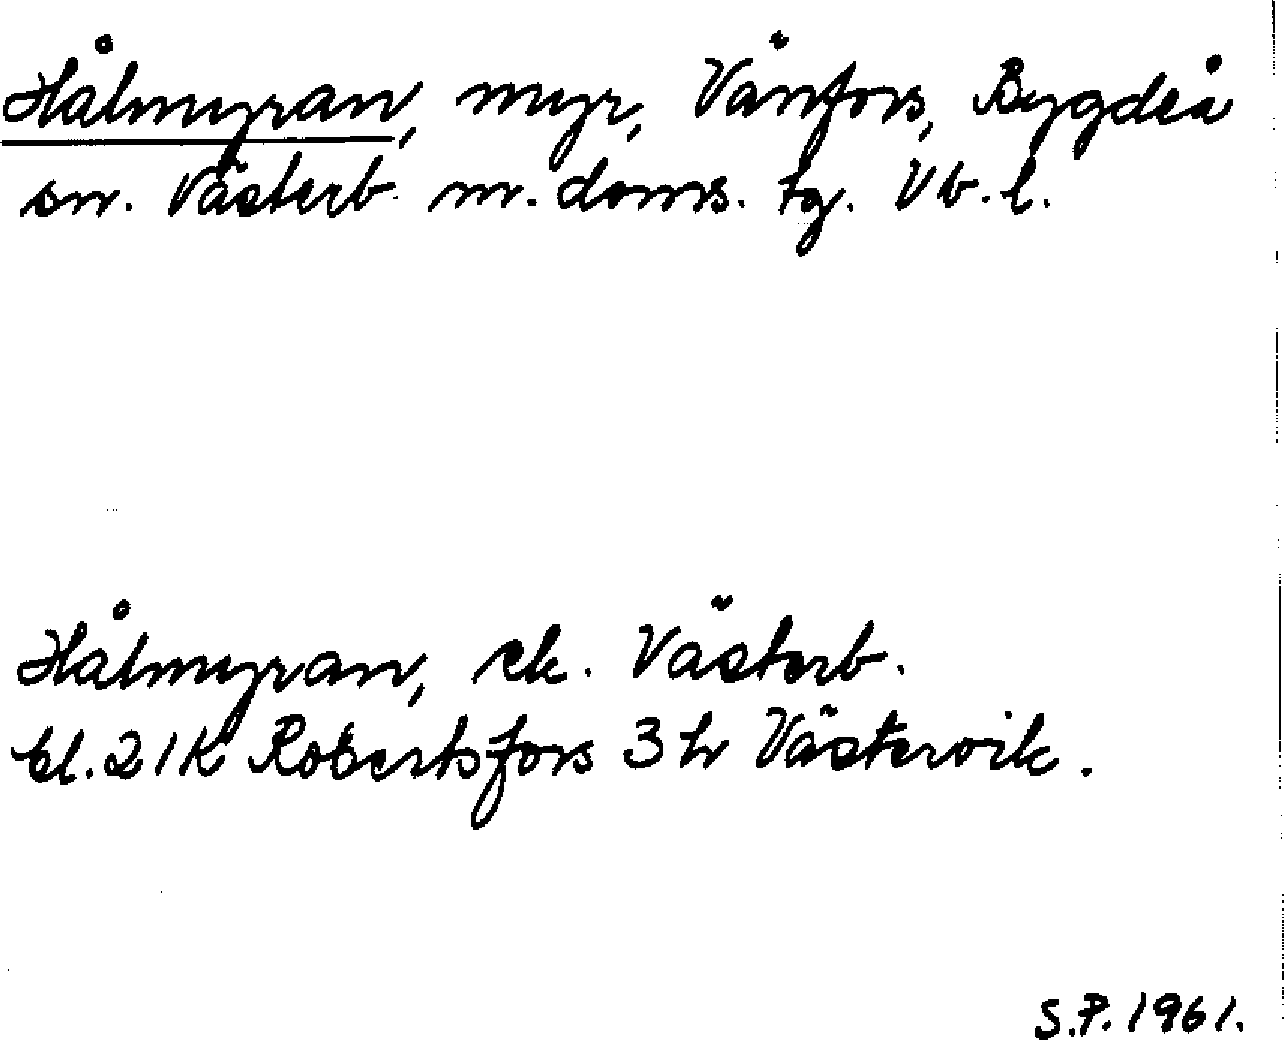 Hålmyran, myr, Vänfors, Bygdeå
sn. Västerb. n. doms. tg. Vb. l.
Hålmyran, ek. Västerb.
bl. 21K Robertsfors 3 h Västervik.
S.P. 1961.